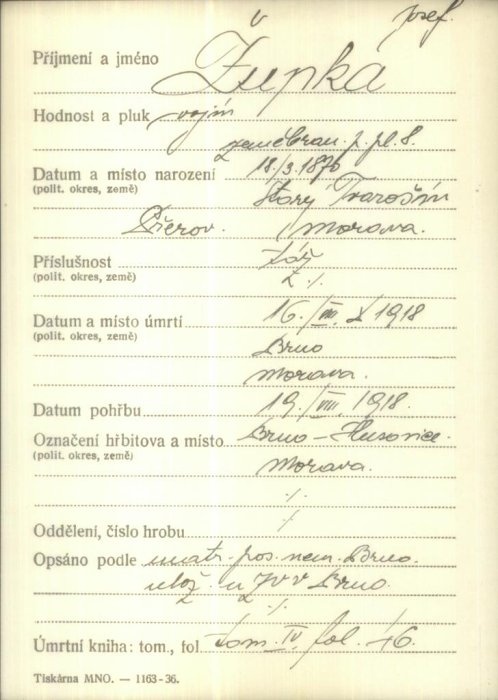 Josef.
Příjmení a jméno Župka
Hodnost a pluk vojín
zeměbran. p. pl. 8.
Datum a místo narození 18./3. 1870
(polit. okres, země) Starý Tvarošín
Přerov. Morava.
Příslušnost táž
(polit. okres, země) ./.
Datum a místo úmrtí 16./VIII. 1918
(polit. okres, země)
Brno
Morava.
Datum pohřbu 19./VIII. 1918.
Označení hřbitova a místo Brno-Husovice.
(polit. okres, země) Morava.
./.
Oddělení, číslo hrobu /
Opsáno podle matr. pos. nem. Brno.
ulož. u ZVV Brno.
./.
Úmrtní kniha: tom., fol. tom. IV. fol. 46.
Tiskárna MNO. — 1163-36.